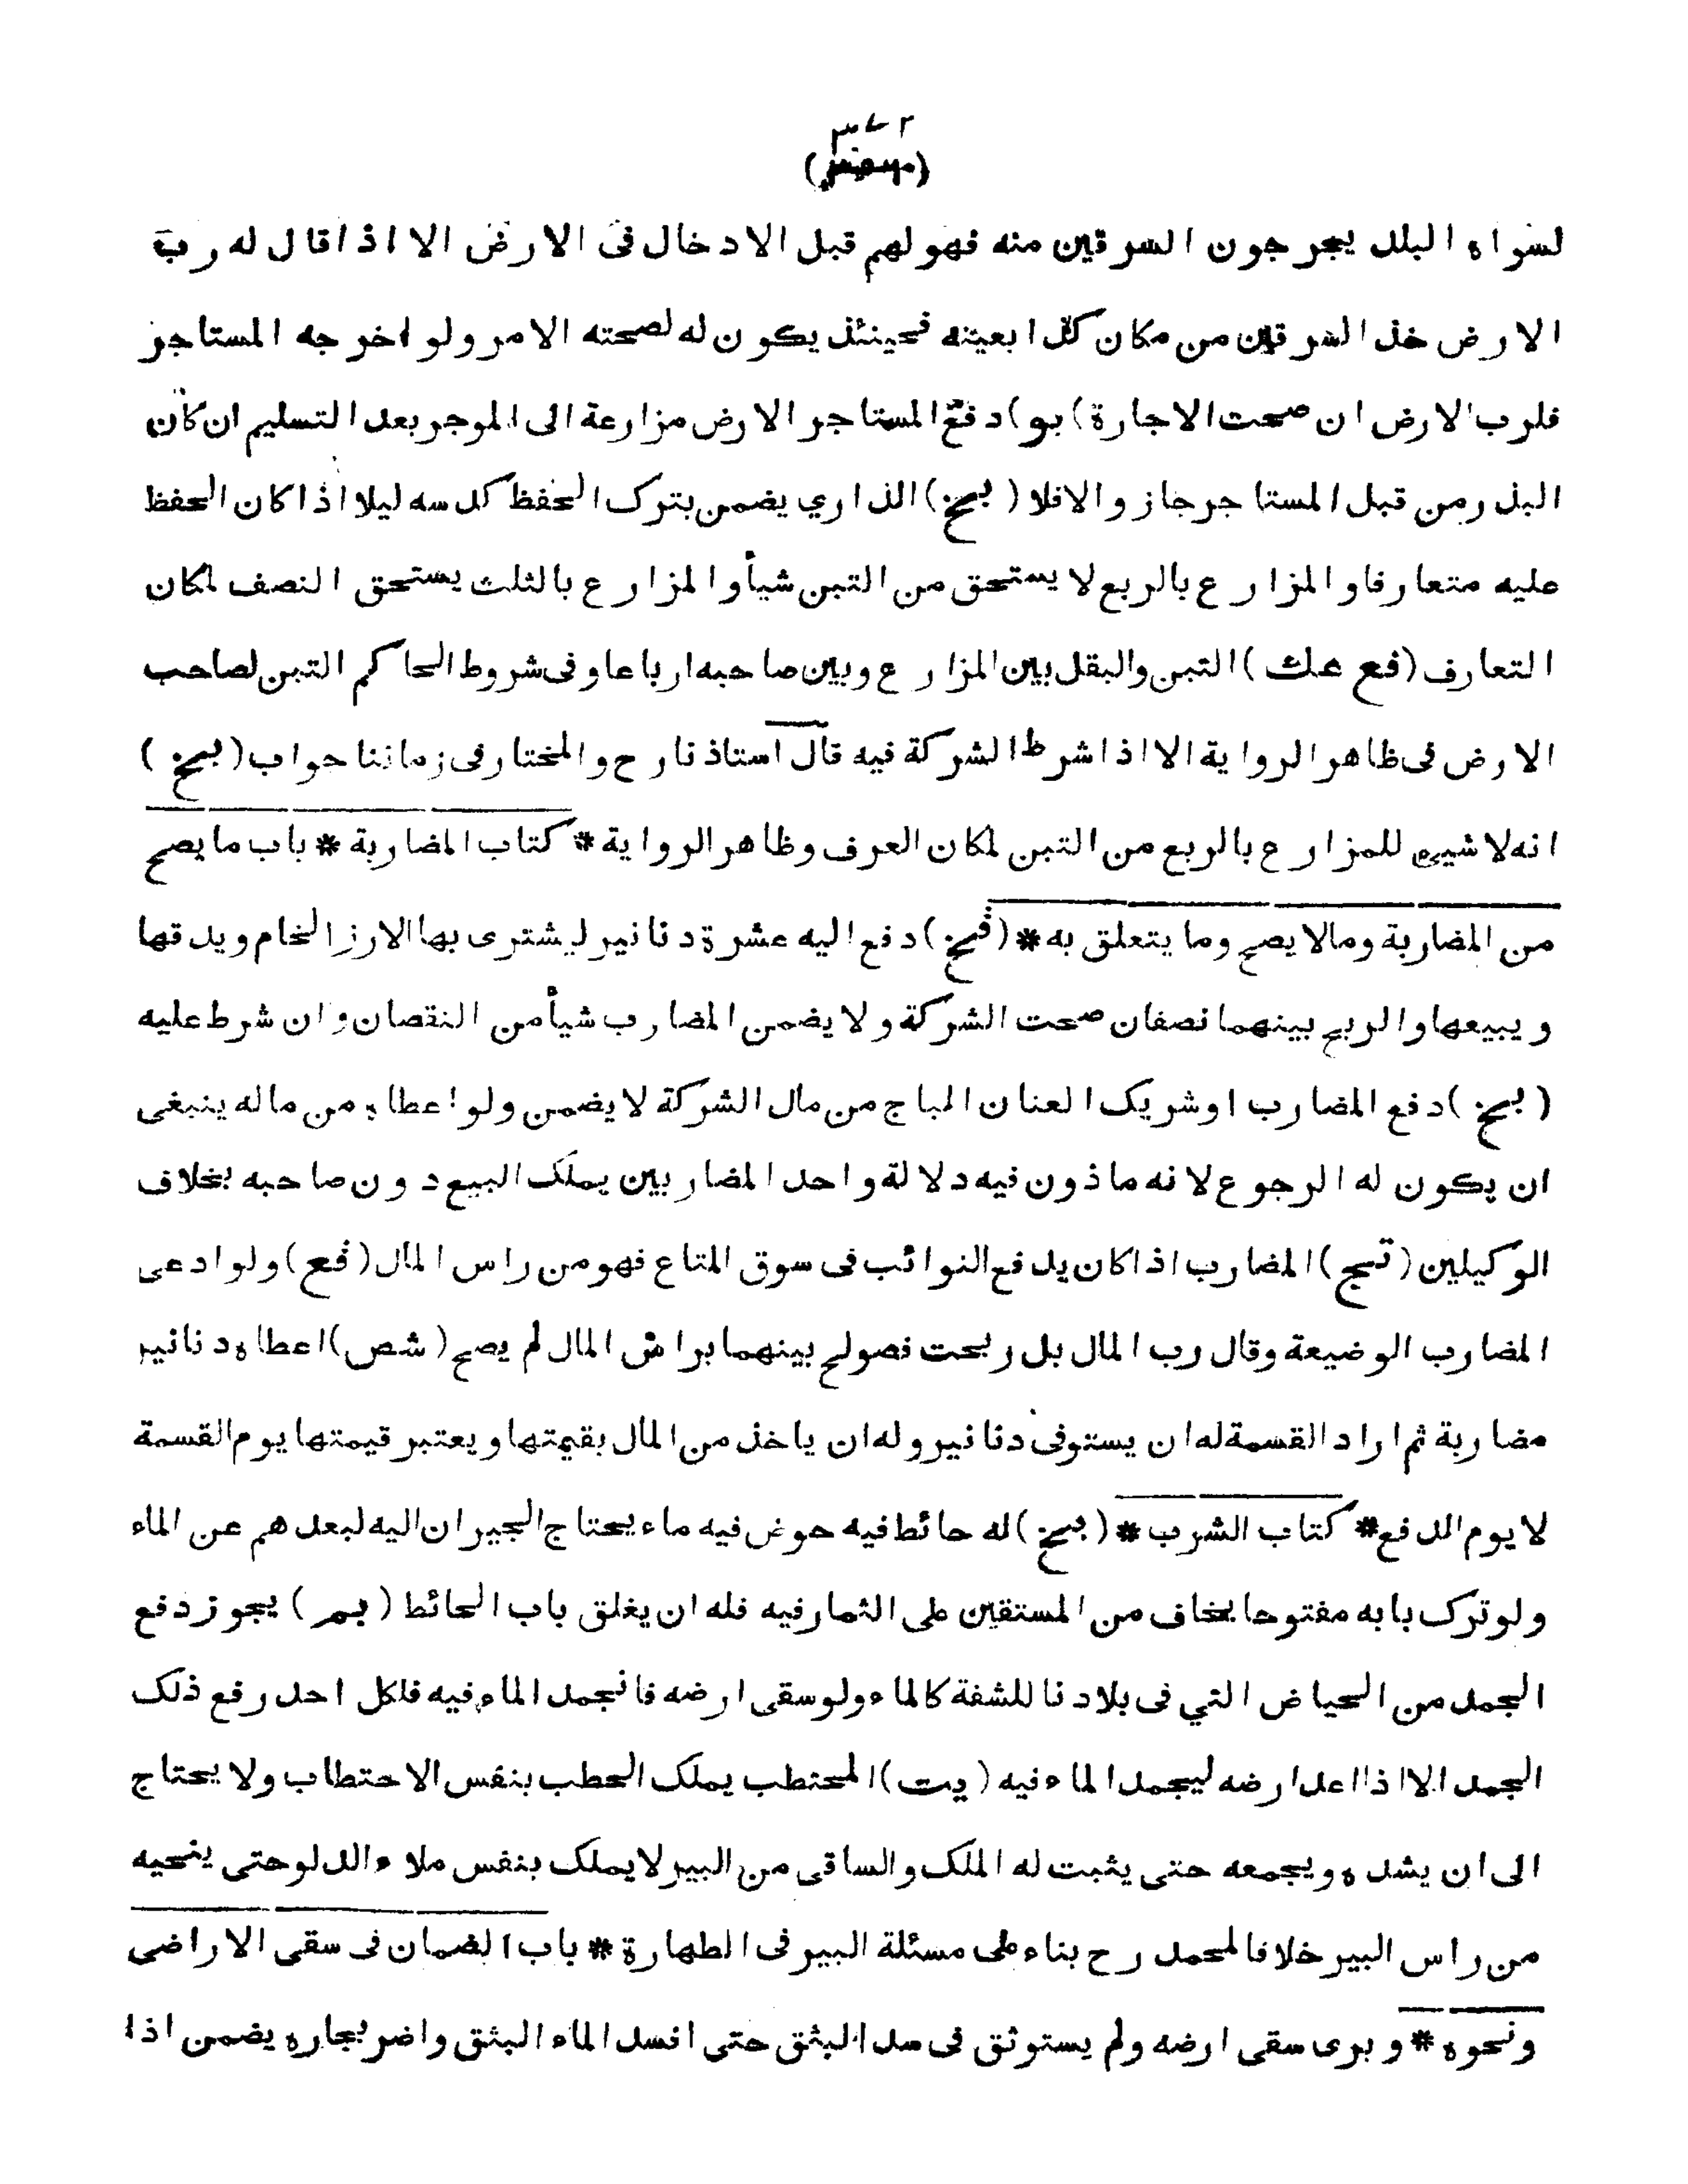 لسواه البلد يخرجون السرقين منه فهولهم قبل الادخال فى الارض الا اذا قال له رب
الارض خذ السرقين من مكان كذا بعينه فحينئذ يكون له لصحته الامر ولو اخرجه المستاجر
فلرب الارض ان صحت الاجارة (بو) دفع المستاجر الارض مزارعة الى الموجر بعد التسليم ان كان
البذر من قبل المستاجر جاز والافلا (بخ) الذاري يضمن بترك الحفظ كدسه ليلا اذا كان الحفظ
عليه متعارفا والمزارع بالربع لا يستحق من التبن شيأ والمزارع بالثلث يستحق النصف لمكان
التعارف (فع عك) التبن والبقل بين المزارع وبين صاحبه ارباعا وفى شروط الحاكم التبن لصاحب
الارض فى ظاهر الرواية الا اذا شرط الشركة فيه قال استاذنا رح والمختار فى زماننا جواب (بخ)
انه لا شيىء للمزارع بالربع من التبن لمكان العرف وظاهر الرواية * كتاب المضاربة * باب ما يصح
من المضاربة ومالا يصح وما يتعلق به * (فخ) دفع اليه عشرة دنانير ليشترى بها الارز الخام ويدقها
ويبيعها والربح بينهما نصفان صحت الشركة ولا يضمن المضارب شيأ من النقصان وان شرط عليه
(بخ) دفع المضارب او شريك العنان الباج من مال الشركة لا يضمن ولو اعطاه من ماله ينبغى
ان يكون له الرجوع لانه ماذون فيه دلالة واحد المضاربين يملك البيع دون صاحبه بخلاف
الوكيلين (قج) المضارب اذا كان يدفع النوائب فى سوق المتاع فهو من راس المال (فع) ولو ادعى
المضارب الوضيعة وقال رب المال بل ربحت فصولح بينهما براس المال لم يصح (شص) اعطاه دنانير
مضاربة ثم اراد القسمة له ان يستوفى دنانير وله ان ياخذ من المال بقيمتها ويعتبر قيمتها يوم القسمة
لا يوم الدفع * كتاب الشرب * (بخ) له حائط فيه حوض فيه ماء يحتاج الجيران اليه لبعدهم عن الماء
ولو ترك بابه مفتوحا يخاف من المستقين على الثمار فيه فله ان يغلق باب الحائط (بم) يجوز دفع
الجمد من الحياض التي فى بلادنا للشفة كالماء ولو سقى ارضه فانجمد الماء فيه فلكل احد رفع ذلك
الجمد الا اذا اعد ارضه ليجمد الماء فيه (يت) المحتطب يملك الحطب بنفس الاحتطاب ولا يحتاج
الى ان يشده ويجمعه حتى يثبت له الملك والساقى من البير لا يملك بنفس ملاء الدلو حتى ينحيه
من راس البير خلافا لمحمد رح بناء على مسئلة البير فى الطهارة * باب الضمان فى سقى الاراضى
ونحوه * و برى سقى ارضه ولم يستوثق فى سد البثق حتى افسد الماء البثق واضر بجاره يضمن اذا